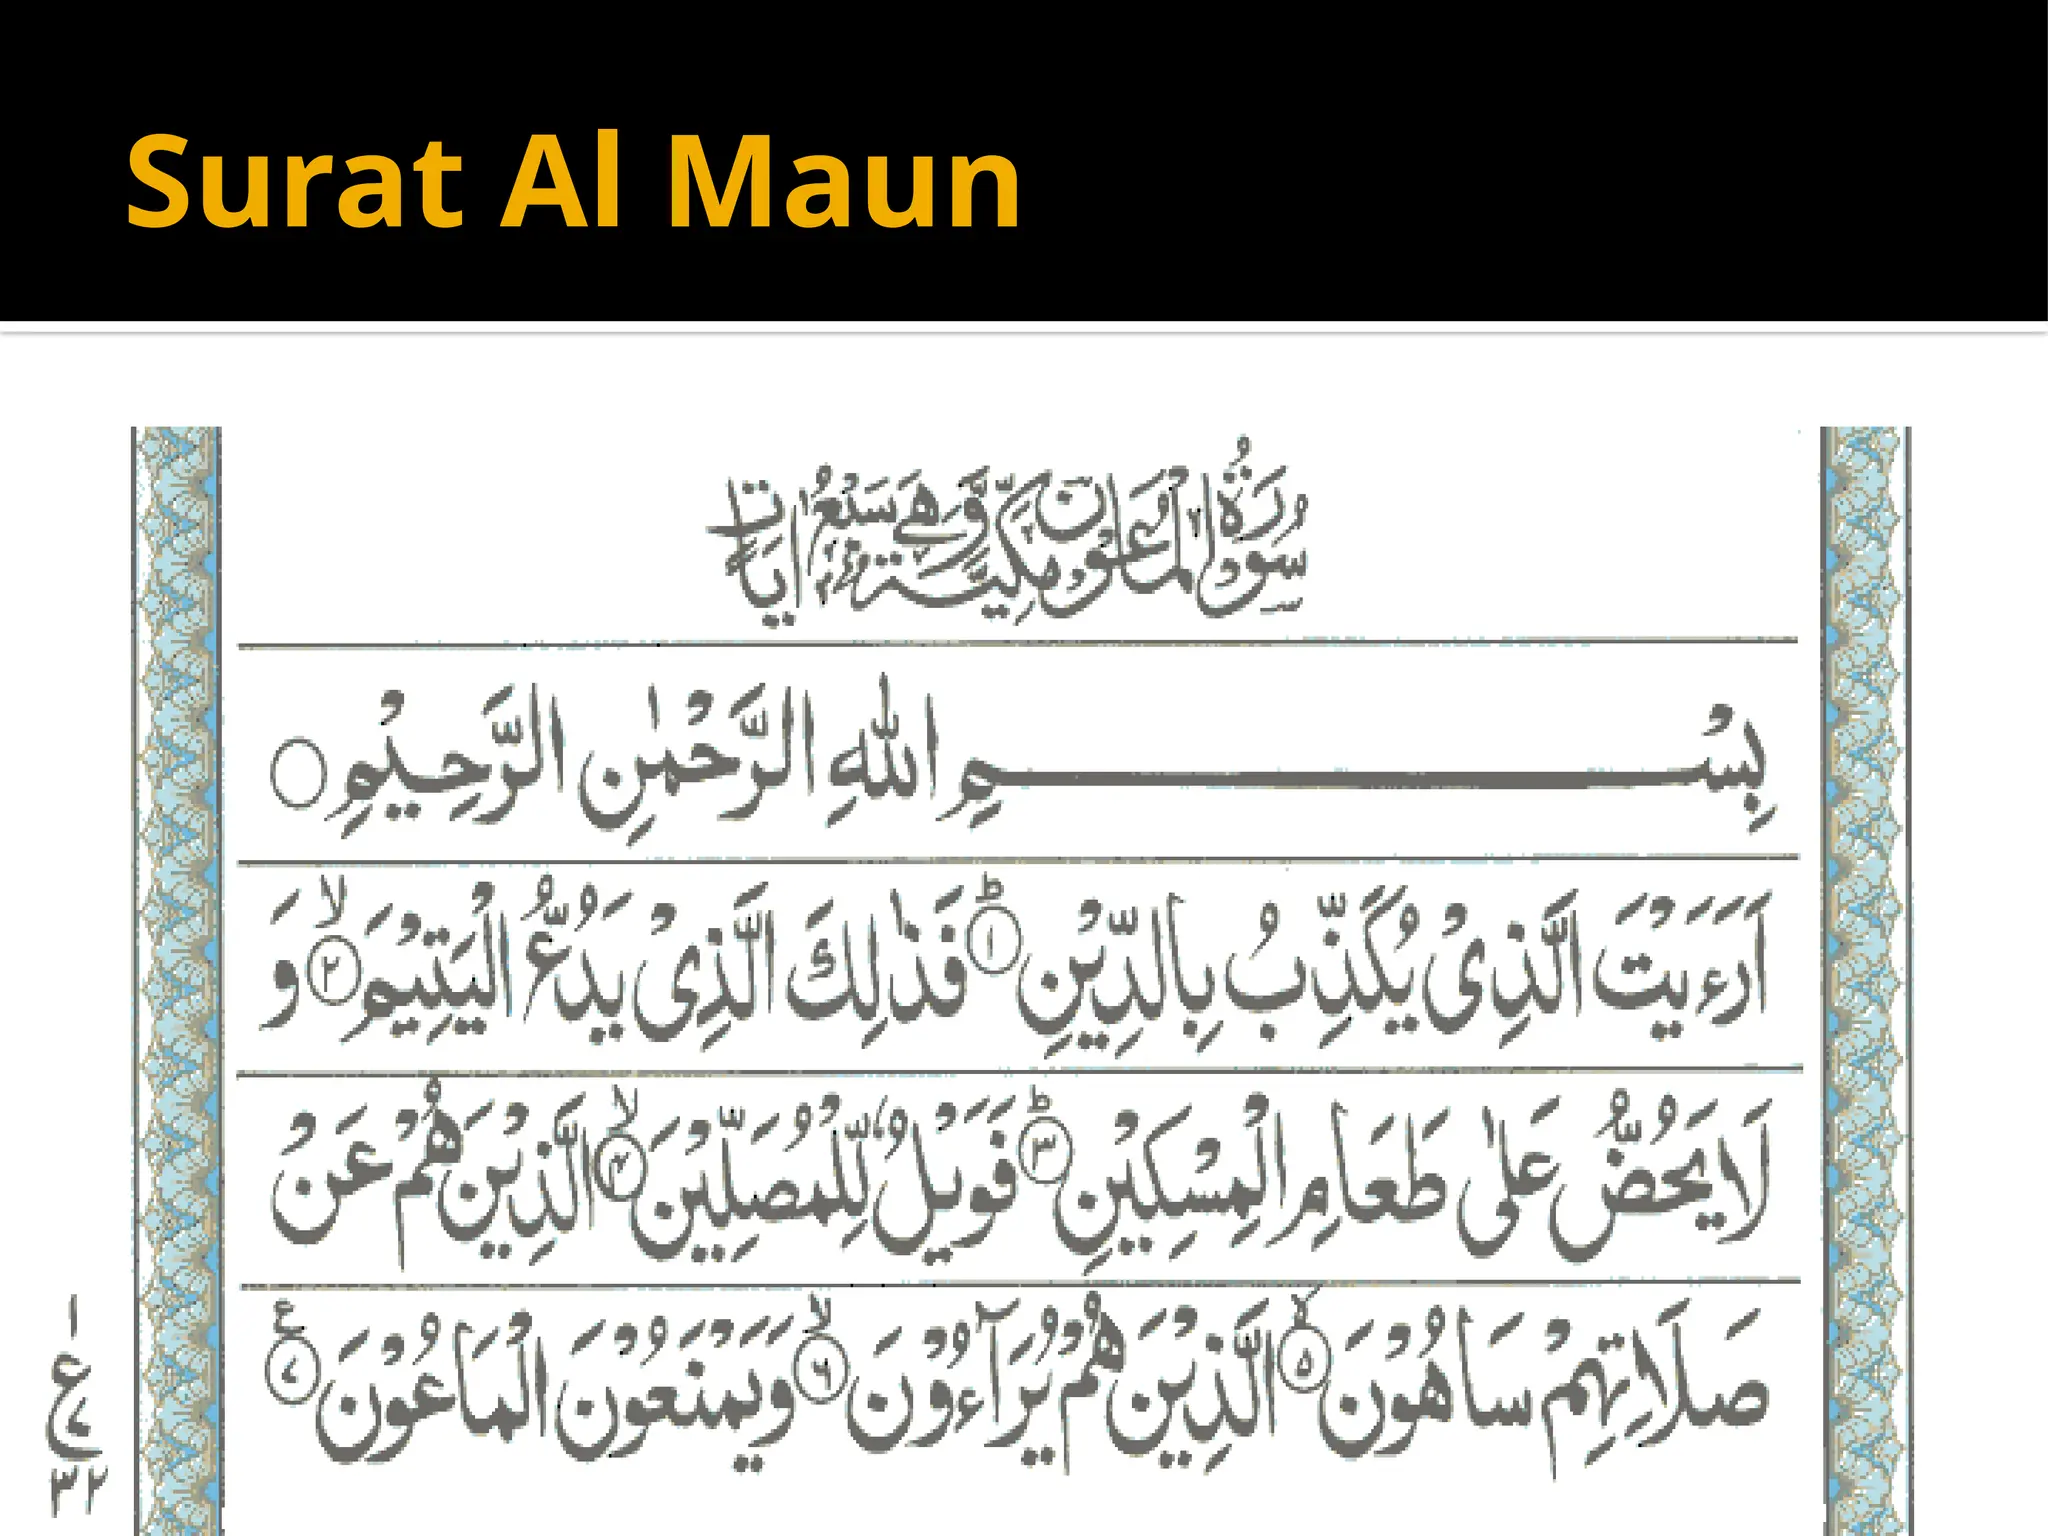 Surat Al Maun
سُوْرَةُ الْمَاعُوْنِ مَكِّيَّةٌ وَّهِيَ سَبْعُ اٰيَاتٍ
بِسْمِ اللهِ الرَّحْمٰنِ الرَّحِيْمِ
اَرَءَيْتَ الَّذِىْ يُكَذِّبُ بِالدِّيْنِ ۱ ط فَذٰلِكَ الَّذِىْ يَدُعُّ الْيَتِيْمَ ۲ لا وَ
لَا يَحُضُّ عَلٰى طَعَامِ الْمِسْكِيْنِ ۳ ط فَوَيْلٌ لِّلْمُصَلِّيْنَ ۴ لا الَّذِيْنَ هُمْ عَنْ
صَلَاتِهِمْ سَاهُوْنَ ۵ لا الَّذِيْنَ هُمْ يُرَآءُوْنَ ۶ لا وَيَمْنَعُوْنَ الْمَاعُوْنَ ۷ ع
۱
ع
۷
۳۲